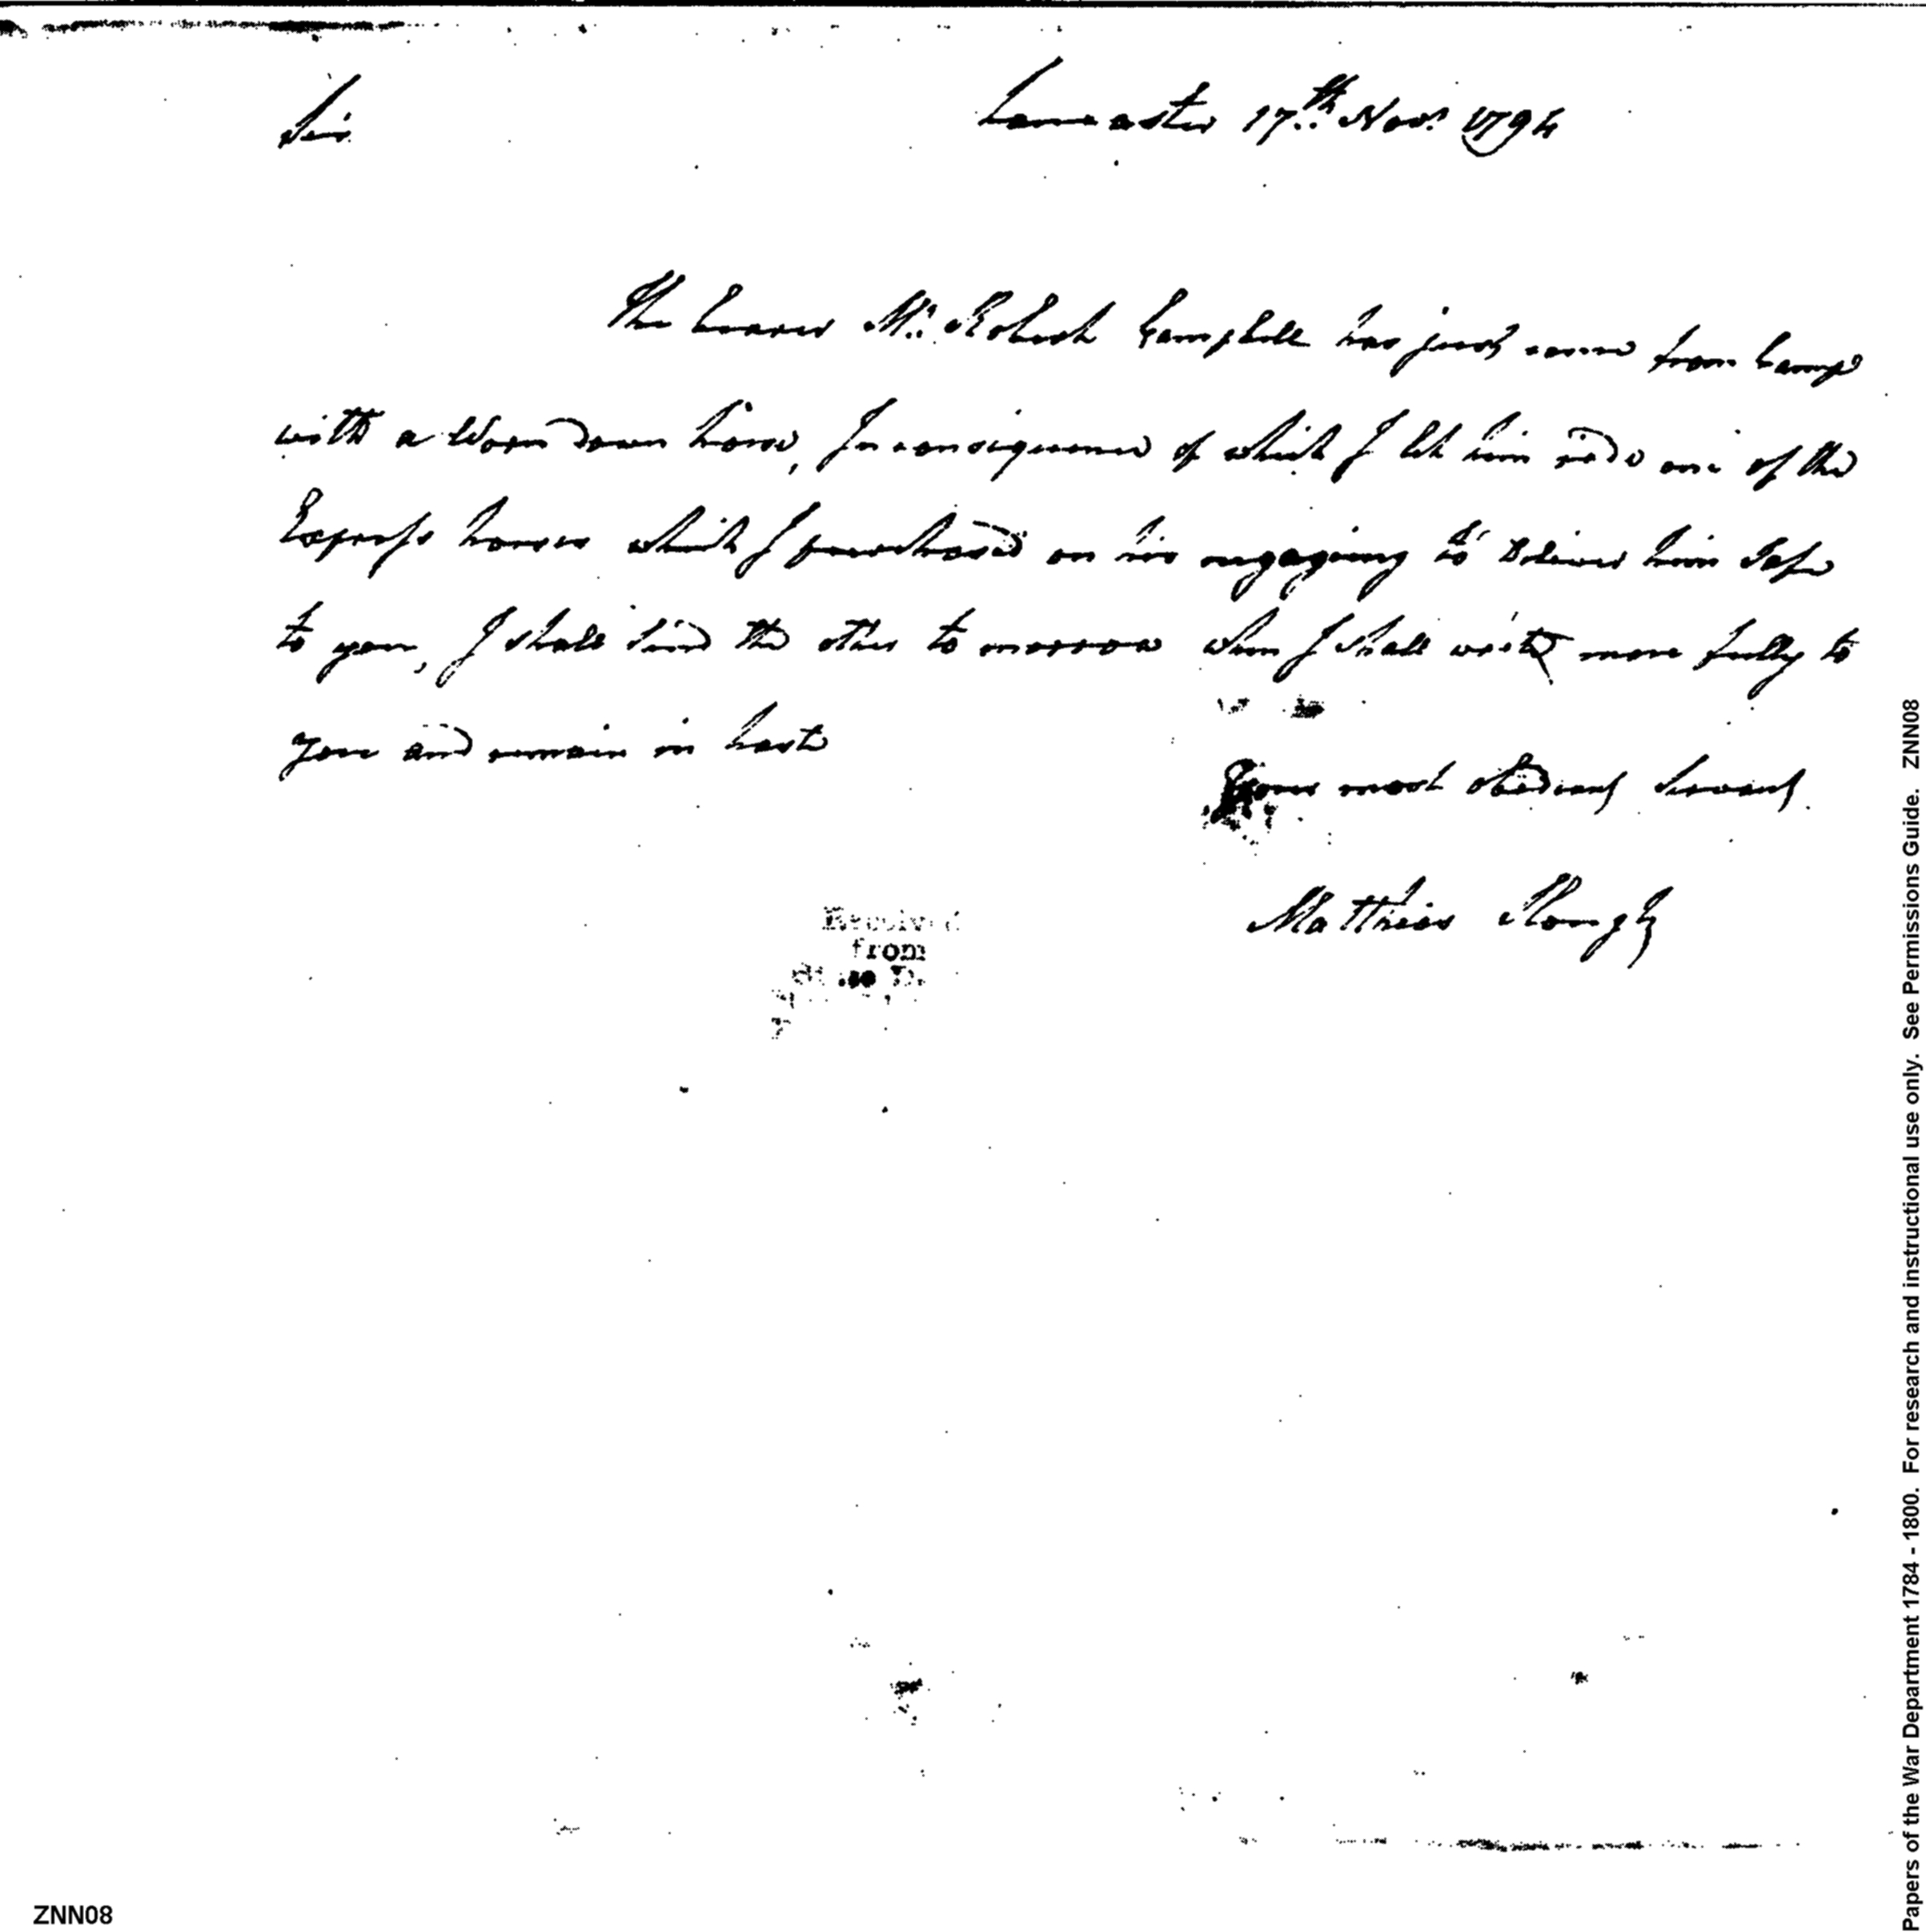 Sir
Lancaster 17.th Novr. 1794
The bearer Mr. Robert Campbell has just come from Camp
with a Worn down horse, In consequence of which I let him ride one of the
Express horses which I purchased on his engaging to deliver him safe
to you, I shall send the other to morrow when I shall write more fully to
you and remain in hast
Your most obedient Servant.
Matthias Slough
Received
from
ZNN08
Papers of the War Department 1784 - 1800. For research and instructional use only. See Permissions Guide. ZNN08